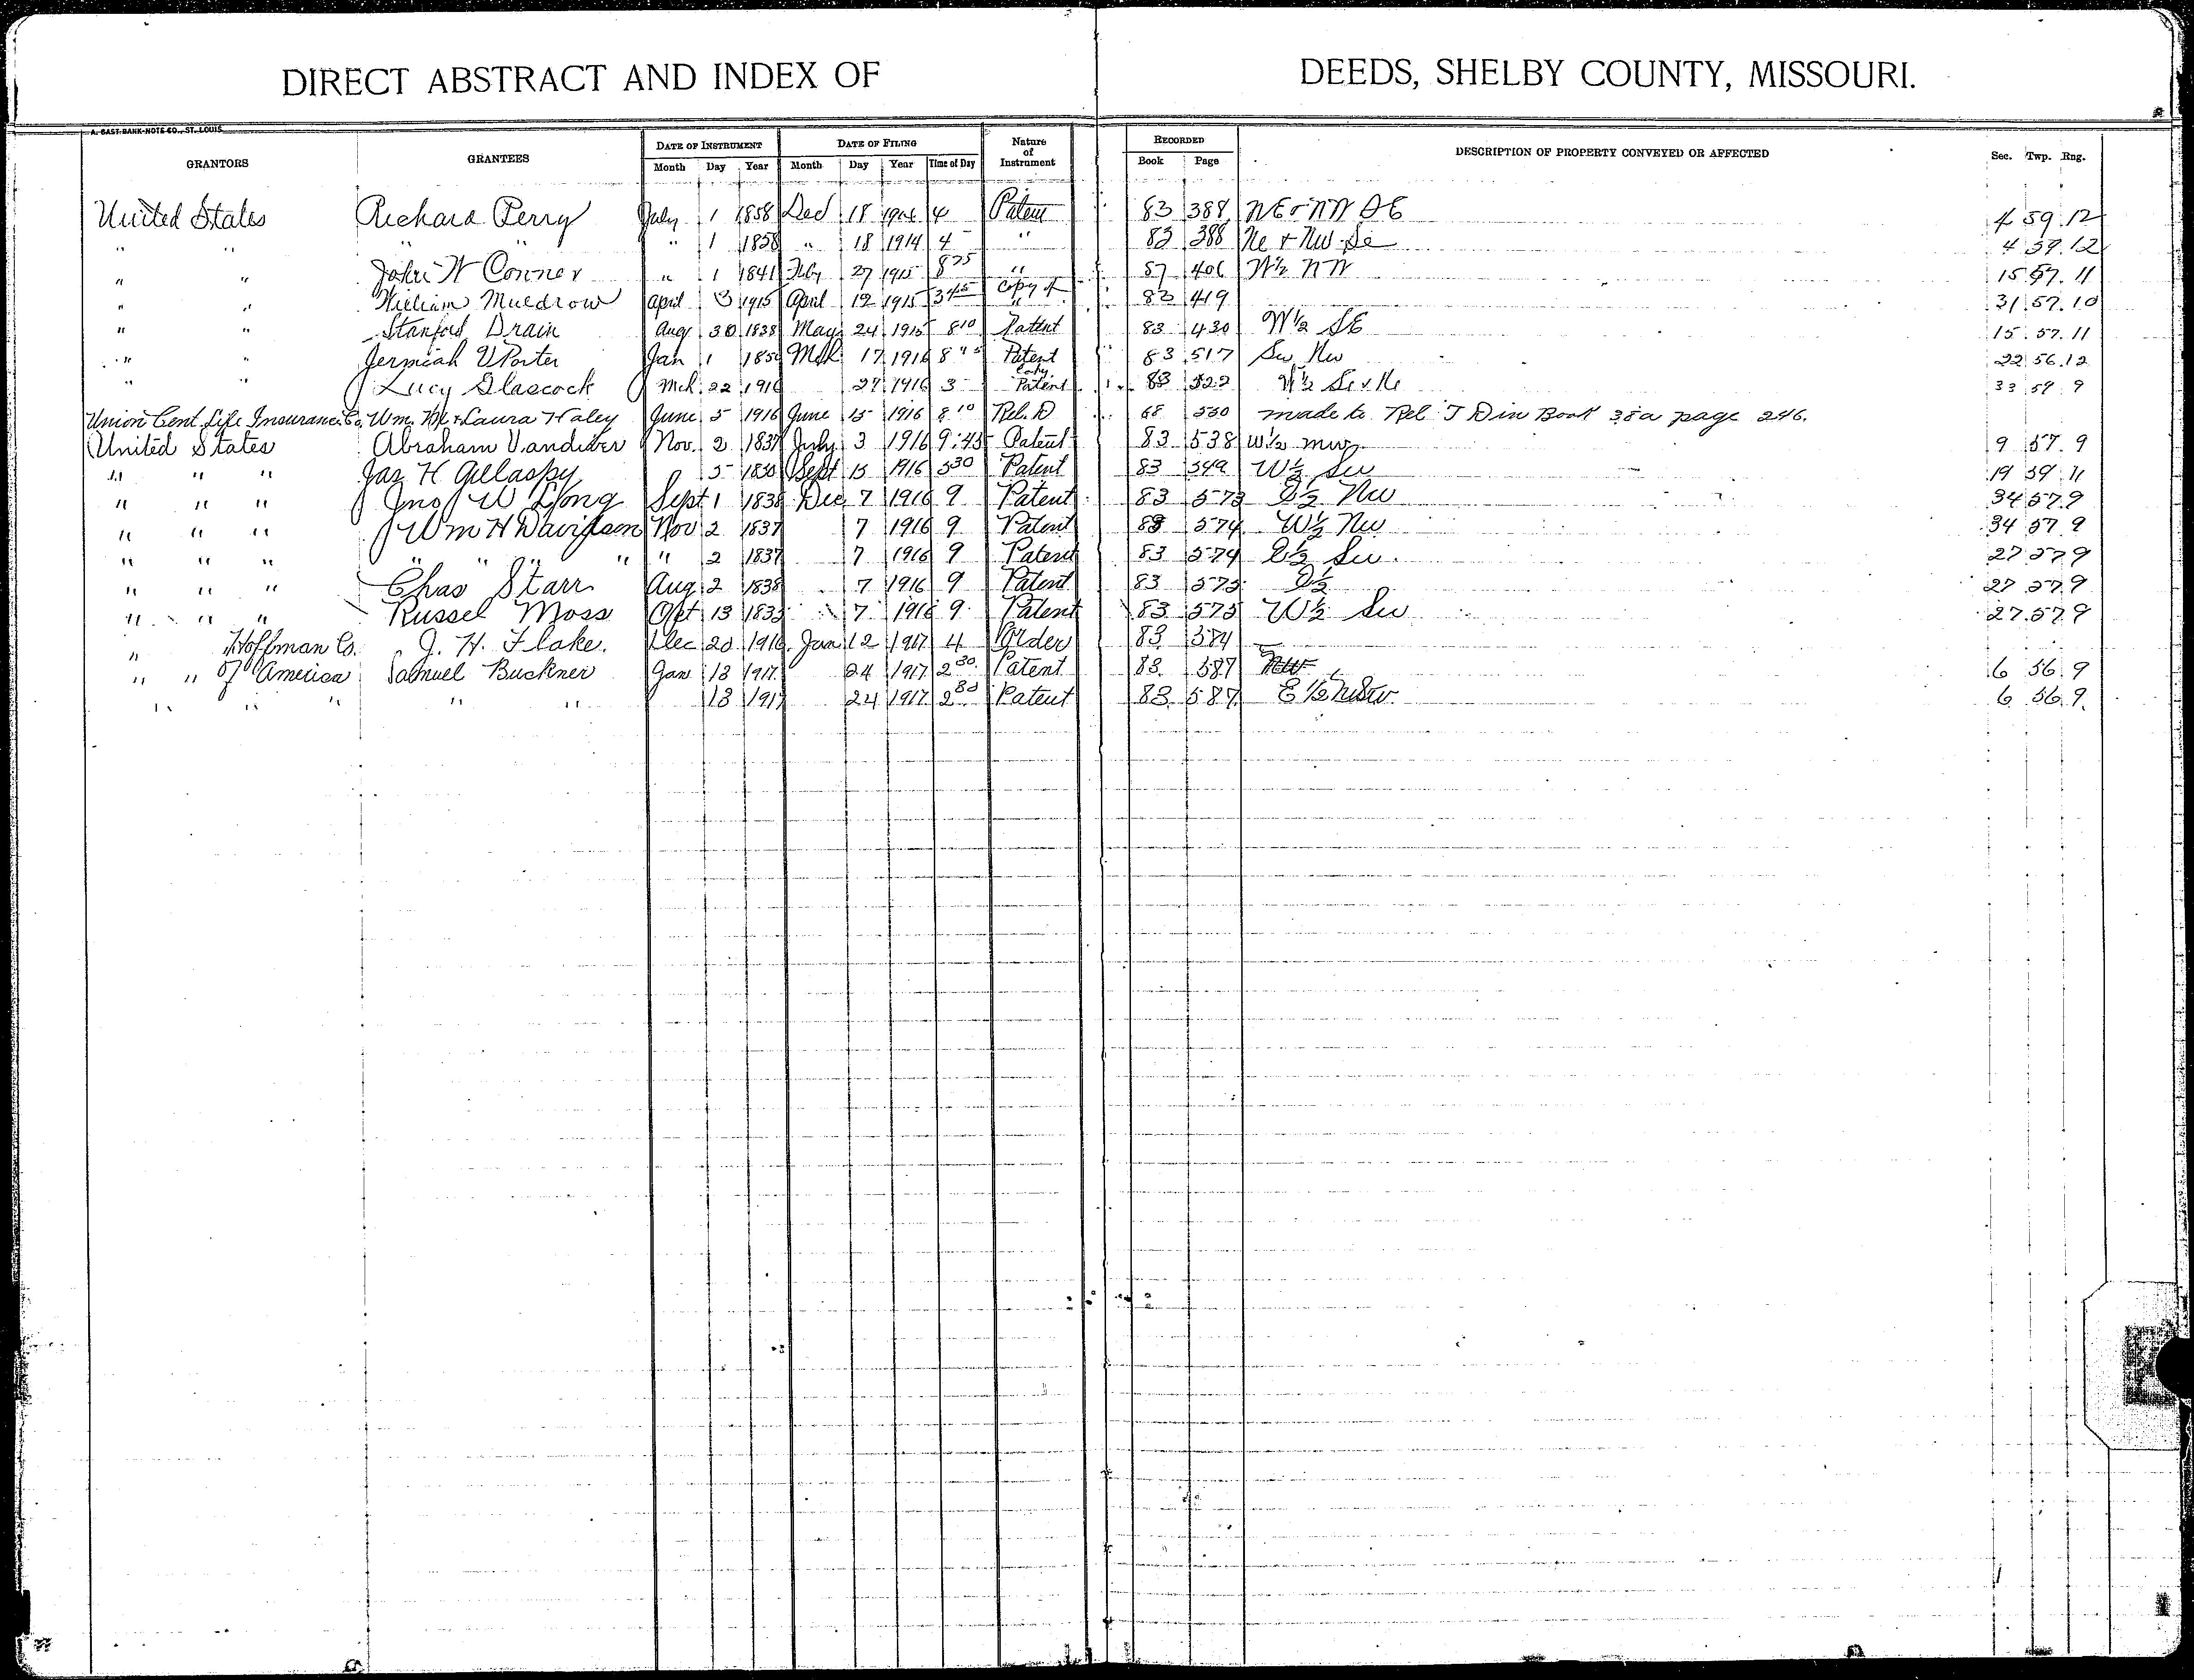 DIRECT ABSTRACT AND INDEX OF DEEDS, SHELBY COUNTY, MISSOURI.
A. GAST BANK NOTE CO., ST. LOUIS
GRANTORS GRANTEES DATE OF INSTRUMENT Month Day Year DATE OF FILING Month Day Year Time of Day Nature of Instrument RECORDED Book Page DESCRIPTION OF PROPERTY CONVEYED OR AFFECTED Sec. Twp. Rng.
United States Richard Perry July 1 1858 Dec 18 4 Patent 83 388 NE & NW SE 4 59 12
" " " 1 1858 " 18 1914 4 " 83 388 Ne & Nw Se 4 59 12
" " John W Conner " 1 1841 Feby 27 1915 8 25 " 87 406 W½ NW 15 57 11
" " William Muldrow April 3 1915 April 12 1915 3 45 Copy of " 83 419 31 57 10
" " Stanford Drain Aug 30 1838 May 24 1915 8 10 Patent 83 430 W½ SE 15 57 11
" " Jermiah V Porter Jan 1 185 Mch 17 1916 8 Patent 83 517 Sw Nw 22 56 12
" " Lucy Glascock Mch 22 1916 27 1916 3 Copy Patent 83 522 33 9
Union Cent Life Insurance Co, Wm. M. & Laura Haley June 5 1916 June 15 1916 8 10 Rel. D 68 550 made to Rel T D in Book 38a page 246.
United States Abraham Vandiver Nov. 2 1837 July 3 1916 9:45 Patent 83 538 W½ nw 9 57 9
" " " Jas H Gillaspy 5 1850 Sept 15 1916 5 30 Patent 83 549 W½ Sw 19 59 11
" " " Jno W Long Sept 1 1838 Dec 7 1916 9 Patent 83 573 E½ Nw 34 57 9
" " " Wm H Davidson Nov 2 1837 7 1916 9 Patent 83 574 W½ Nw 34 57 9
" " " " " " " " 2 1837 7 1916 9 Patent 83 574 E½ Sw. 27 57 9
" " " Chas Starr Aug 2 1838 7 1916 9 Patent 83 575 E½ 27 57 9
" " " Russel Moss Oct 13 1835 7 1916 9 Patent 83 575 W½ Sw 27 57 9
" Hoffman Co. J. H. Flake. Dec 20 1916 Jan 12 1917 4 Order 83 584
" " of America Samuel Buckner Jan 13 1917 24 1917 2 30 Patent 83 587 6 56 9
" " " " " 13 1917 24 1917 2 30 Patent 83 587 E½ 6 56 9